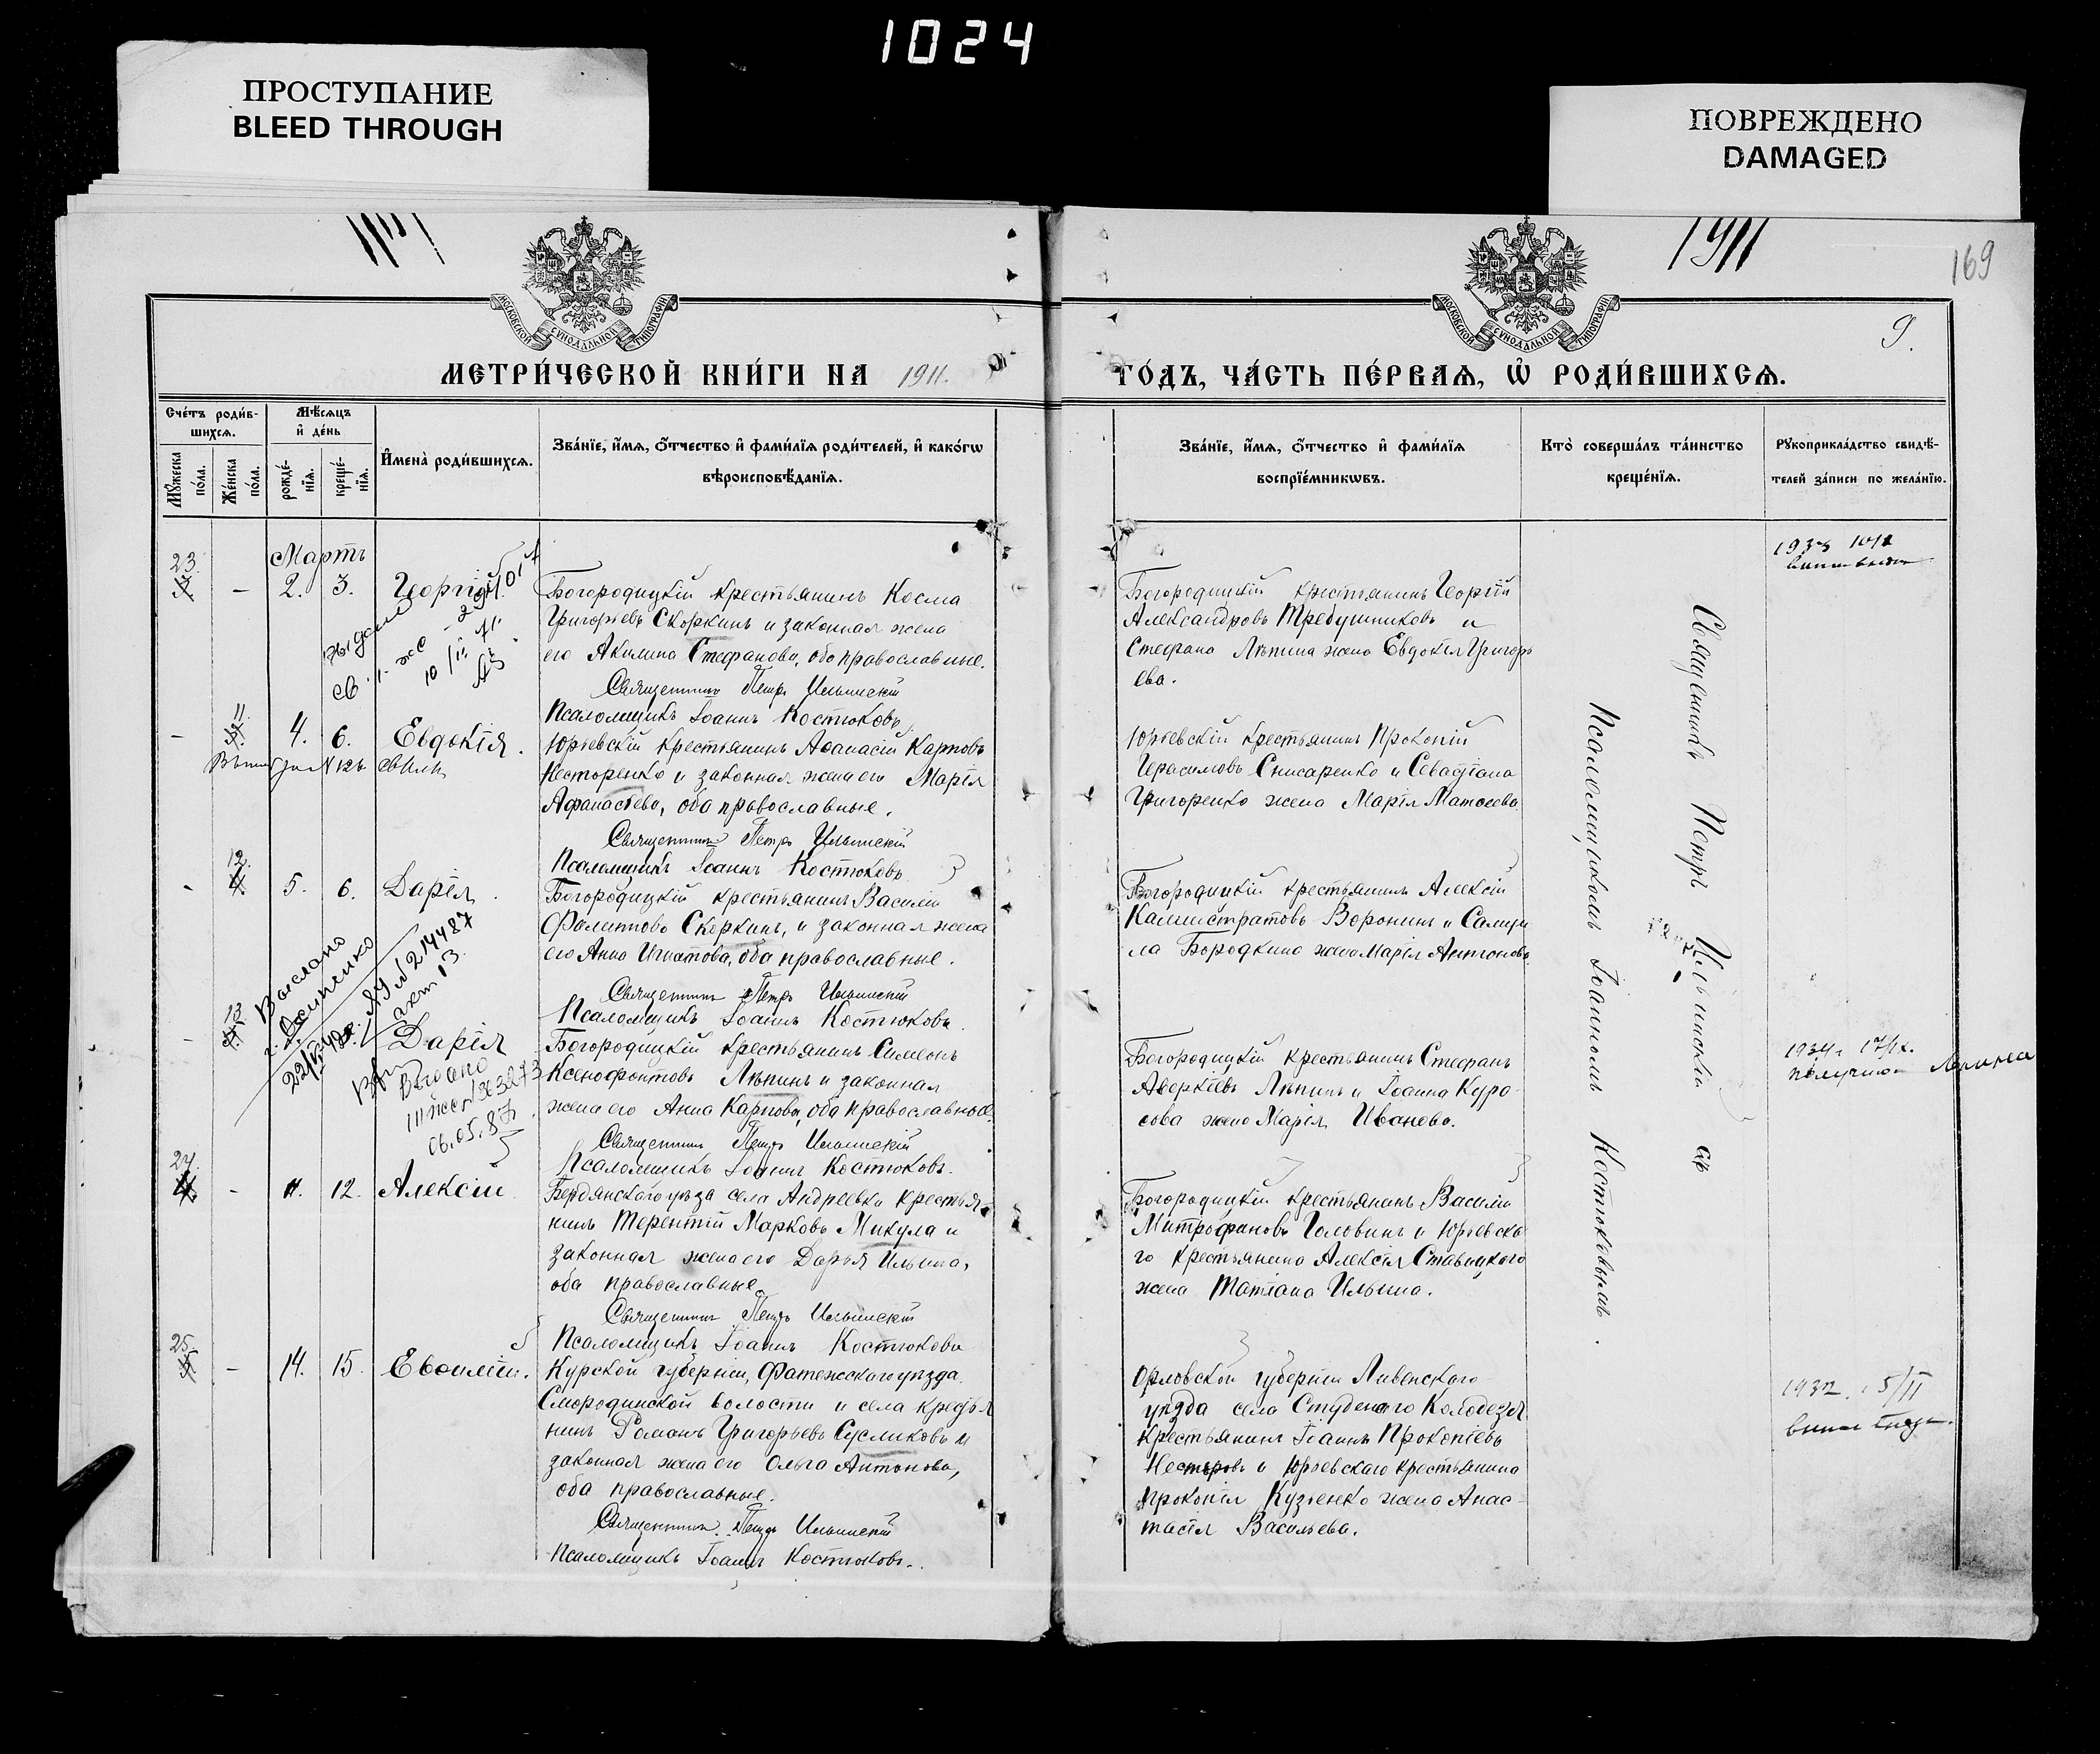 1024
ПРОСТУПАНИЕ
BLEED THROUGH
ПОВРЕЖДЕНО
DAMAGED
1911
169
9.
МОСКОВСКОЙ СУНОДАЛЬНОЙ ТИПОГРАФІИ
МОСКОВСКОЙ СУНОДАЛЬНОЙ ТИПОГРАФІИ
МЕТРИ́ЧЕСКОЙ КНИ́ГИ НА 1911.
ГО́ДЪ, ЧА́СТЬ ПЕ́РВАѦ, Ѽ РОДИ́ВШИХСѦ.
Сче́тъ роди́в-
шихсѧ.
Мꙋ́жеска по́ла.
Же́нска по́ла.
Мѣ́сѧцъ
и҆ де́нь
рожде́-
нїѧ.
креще́-
нїѧ.
И҆мена̀ роди́вшихсѧ.
Зва́нїе, и҆́мѧ, ѻ҆́тчество и҆ фами́лїѧ роди́телей, и҆ како́гѡ
вѣроисповѣ́данїѧ.
Зва́нїе, и҆́мѧ, ѻ҆́тчество и҆ фами́лїѧ
воспрїе́мникѡвъ.
Кто̀ соверша́лъ та́инство
креще́нїѧ.
Рꙋкоприкла́дство свидѣ́-
телей за́писи по жела́нїю.
Мартъ
23.
- 2. 3. Георгій
Богородицкій крестьянинъ Косма
Григорьевъ Скоркинъ и законная жена
его Акилина Стефанова, оба православные.
Священникъ Петръ Ильинскій
Псаломщикъ Іоаннъ Костюковъ
Богородицкій крестьянинъ Георгій
Александровъ Требушниковъ и
Стефана Лѣпина жена Евдокія Григорь
ева.
11
- 4. 6. Евдокія.
Юрьевскій крестьянинъ Аѳанасій Карповъ
Несторенко и законная жена его Марія
Афанасьева, оба православные.
Священникъ Петръ Ильинскій
Псаломщикъ Іоаннъ Костюковъ
Юрьевскій крестьянинъ Прокопій
Герасимовъ Снисаренко и Севастіана
Григоренко жена Марія Матвеева
12.
- 5. 6. Дарія
Богородицкій крестьянинъ Василій
Филитовъ Скоркинъ, и законная жена
его Анна Игнатова, оба православные.
Священникъ Петръ Ильинскій
Псаломщикъ Іоаннъ Костюковъ
Богородицкій крестьянинъ Алексій
Каллистратовъ Воронинъ и Самуи
ла Бородкина жена Марія Антонова
Выслано
№ 214487
13.
- Дарія
Выдано
06.05.87
Богородицкій крестьянинъ Симеонъ
Ксенофонтовъ Лѣпинъ и законная
жена его Анна Карпова, оба православные
Священникъ Петръ Ильинскій
Псаломщикъ Іоаннъ Костюковъ.
Богородицкій крестьянинъ Стефанъ
Аверкіевъ Лѣпинъ и Іоанна Куро-
сова жена Марія Иванова.
24.
- 11. 12. Алексій
Бердянскаго уѣзда села Андреевки крестья
нинъ Терентій Марковъ Микула и
законная жена его Дарья Ильина,
оба православные.
Священникъ Петръ Ильинскій
Псаломщикъ Іоаннъ Костюковъ
Богородицкій крестьянинъ Василій
Митрофановъ Головинъ и Юрьевска
го крестьянина Алексія Ставицкого
жена Татіана Ильина.
25.
- 14. 15. Евѳимій.
Курской губерніи, Фатежскаго уѣзда
Смородинской волости и села крестья
нинъ Романъ Григорьевъ Сусликовъ и
законная жена его Ольга Антонова,
оба православные.
Священникъ Петръ Ильинскій
Псаломщикъ Іоаннъ Костюковъ.
Орловской губерніи Ливенского
уѣзда села Студенаго Колодезя
крестьянинъ Іоаннъ Прокопіевъ
Нестеровъ и Юрьевскаго крестьянина
Прокопія Кузьенко жена Анас-
тасія Васильева.
Священникъ Петръ Ильинскій съ
Псаломщикомъ Іоанномъ Костюковымъ.